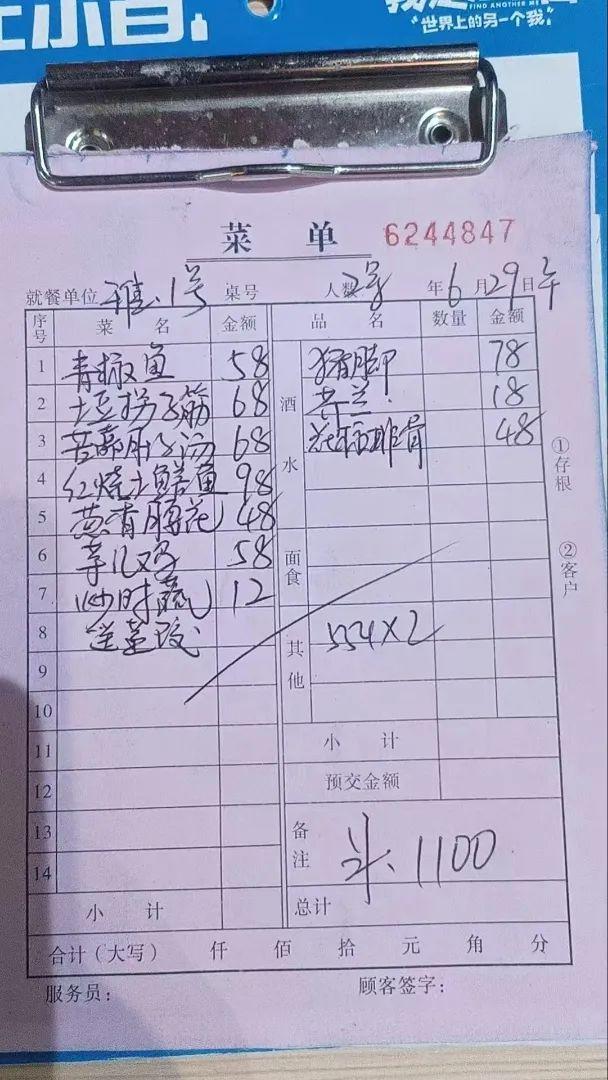 FIND ANOTHER ME
世界上的另一个我
菜 单
6244847
就餐单位 雅.1号 桌号 人数 2号 年 6 月 29 日 午
序号 菜 名 金额
1 青椒鱼 58
2 土豆拐子筋 68
3 68
4 红烧土鳝鱼 98
5 葱香腰花 48
6 58
7 炒时蔬 12
8
9
10
11
12
13
14
小 计
品 名 数量 金额
酒水
猪脚 78
18
排骨 48
面食
其他
554×2
小 计
预交金额
备注
1100
总计
合计（大写） 仟 佰 拾 元 角 分
服务员：
顾客签字：
①存根
②客户